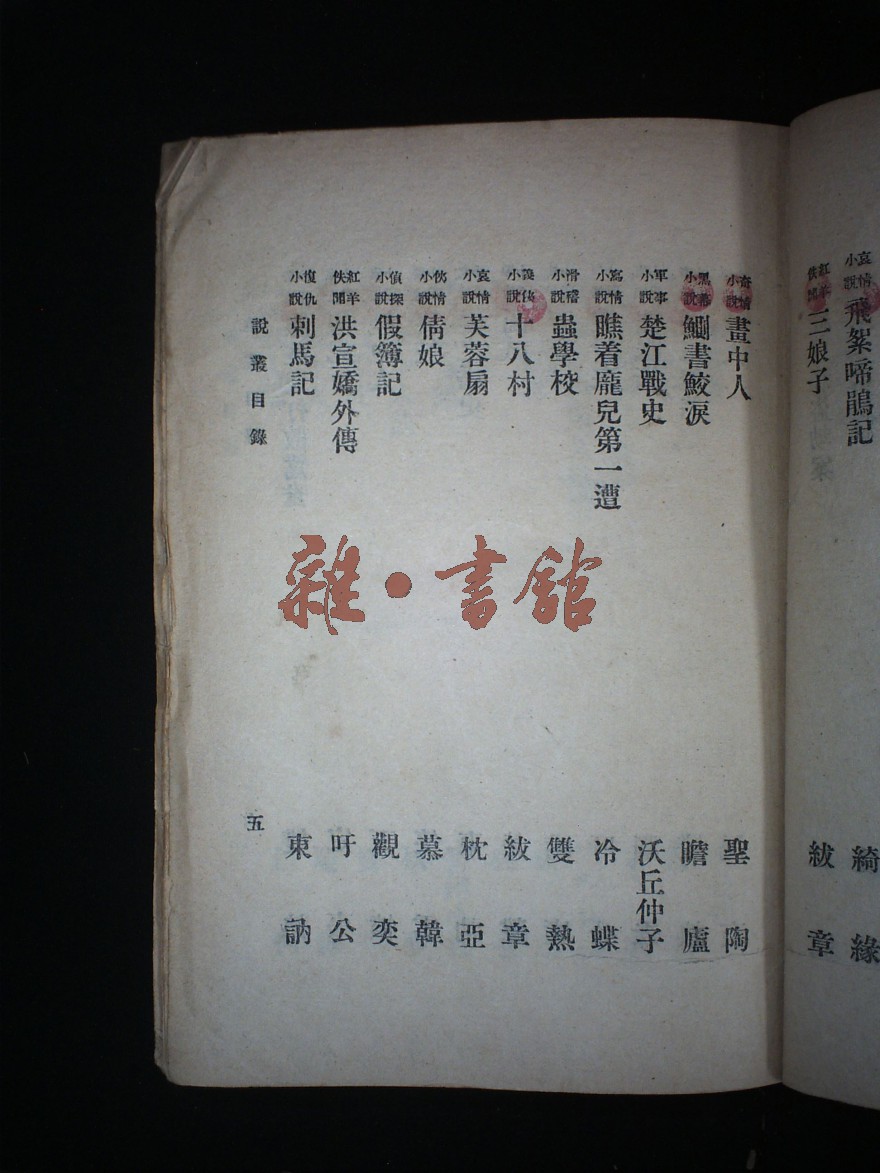 哀情小說 飛絮啼鵑記 綺緣
紅羊佚聞 三娘子 紱章
奇情小說 畫中人 聖陶
黑幕小說 鰂書鮫淚 瞻廬
軍事小說 楚江戰史 沃丘仲子
寫情小說 瞧着龐兒第一遭 冷蝶
滑稽小說 蟲學校 雙熱
義俠小說 十八村 紱章
哀情小說 芙蓉扇 枕亞
俠情小說 倩娘 慕韓
偵探小說 假簿記 觀奕
紅羊佚聞 洪宣嬌外傳 吁公
復仇小說 刺馬記 東訥
說叢目錄 五
雜·書館